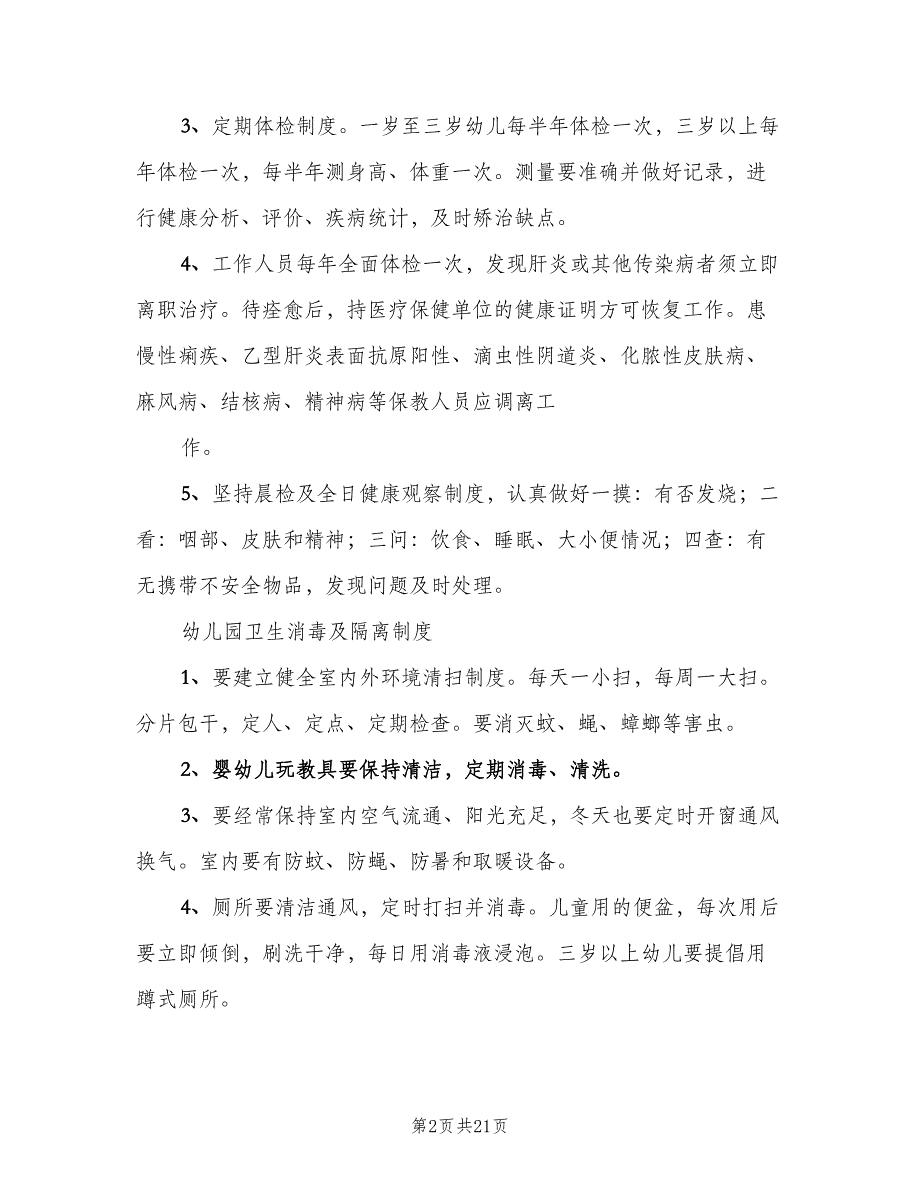 3、定期体检制度。一岁至三岁幼儿每半年体检一次，三岁以上每
年体检一次，每半年测身高、体重一次。测量要准确并做好记录，进
行健康分析、评价、疾病统计，及时矫治缺点。
4、工作人员每年全面体检一次，发现肝炎或其他传染病者须立即
离职治疗。待痊愈后，持医疗保健单位的健康证明方可恢复工作。患
慢性痢疾、乙型肝炎表面抗原阳性、滴虫性阴道炎、化脓性皮肤病、
麻风病、结核病、精神病等保教人员应调离工
作。
5、坚持晨检及全日健康观察制度，认真做好一摸：有否发烧；二
看：咽部、皮肤和精神；三问：饮食、睡眠、大小便情况；四查：有
无携带不安全物品，发现问题及时处理。
幼儿园卫生消毒及隔离制度
1、要建立健全室内外环境清扫制度。每天一小扫，每周一大扫。
分片包干，定人、定点、定期检查。要消灭蚊、蝇、蟑螂等害虫。
2、婴幼儿玩教具要保持清洁，定期消毒、清洗。
3、要经常保持室内空气流通、阳光充足，冬天也要定时开窗通风
换气。室内要有防蚊、防蝇、防暑和取暖设备。
4、厕所要清洁通风，定时打扫并消毒。儿童用的便盆，每次用后
要立即倾倒，刷洗干净，每日用消毒液浸泡。三岁以上幼儿要提倡用
蹲式厕所。
第2页共21页